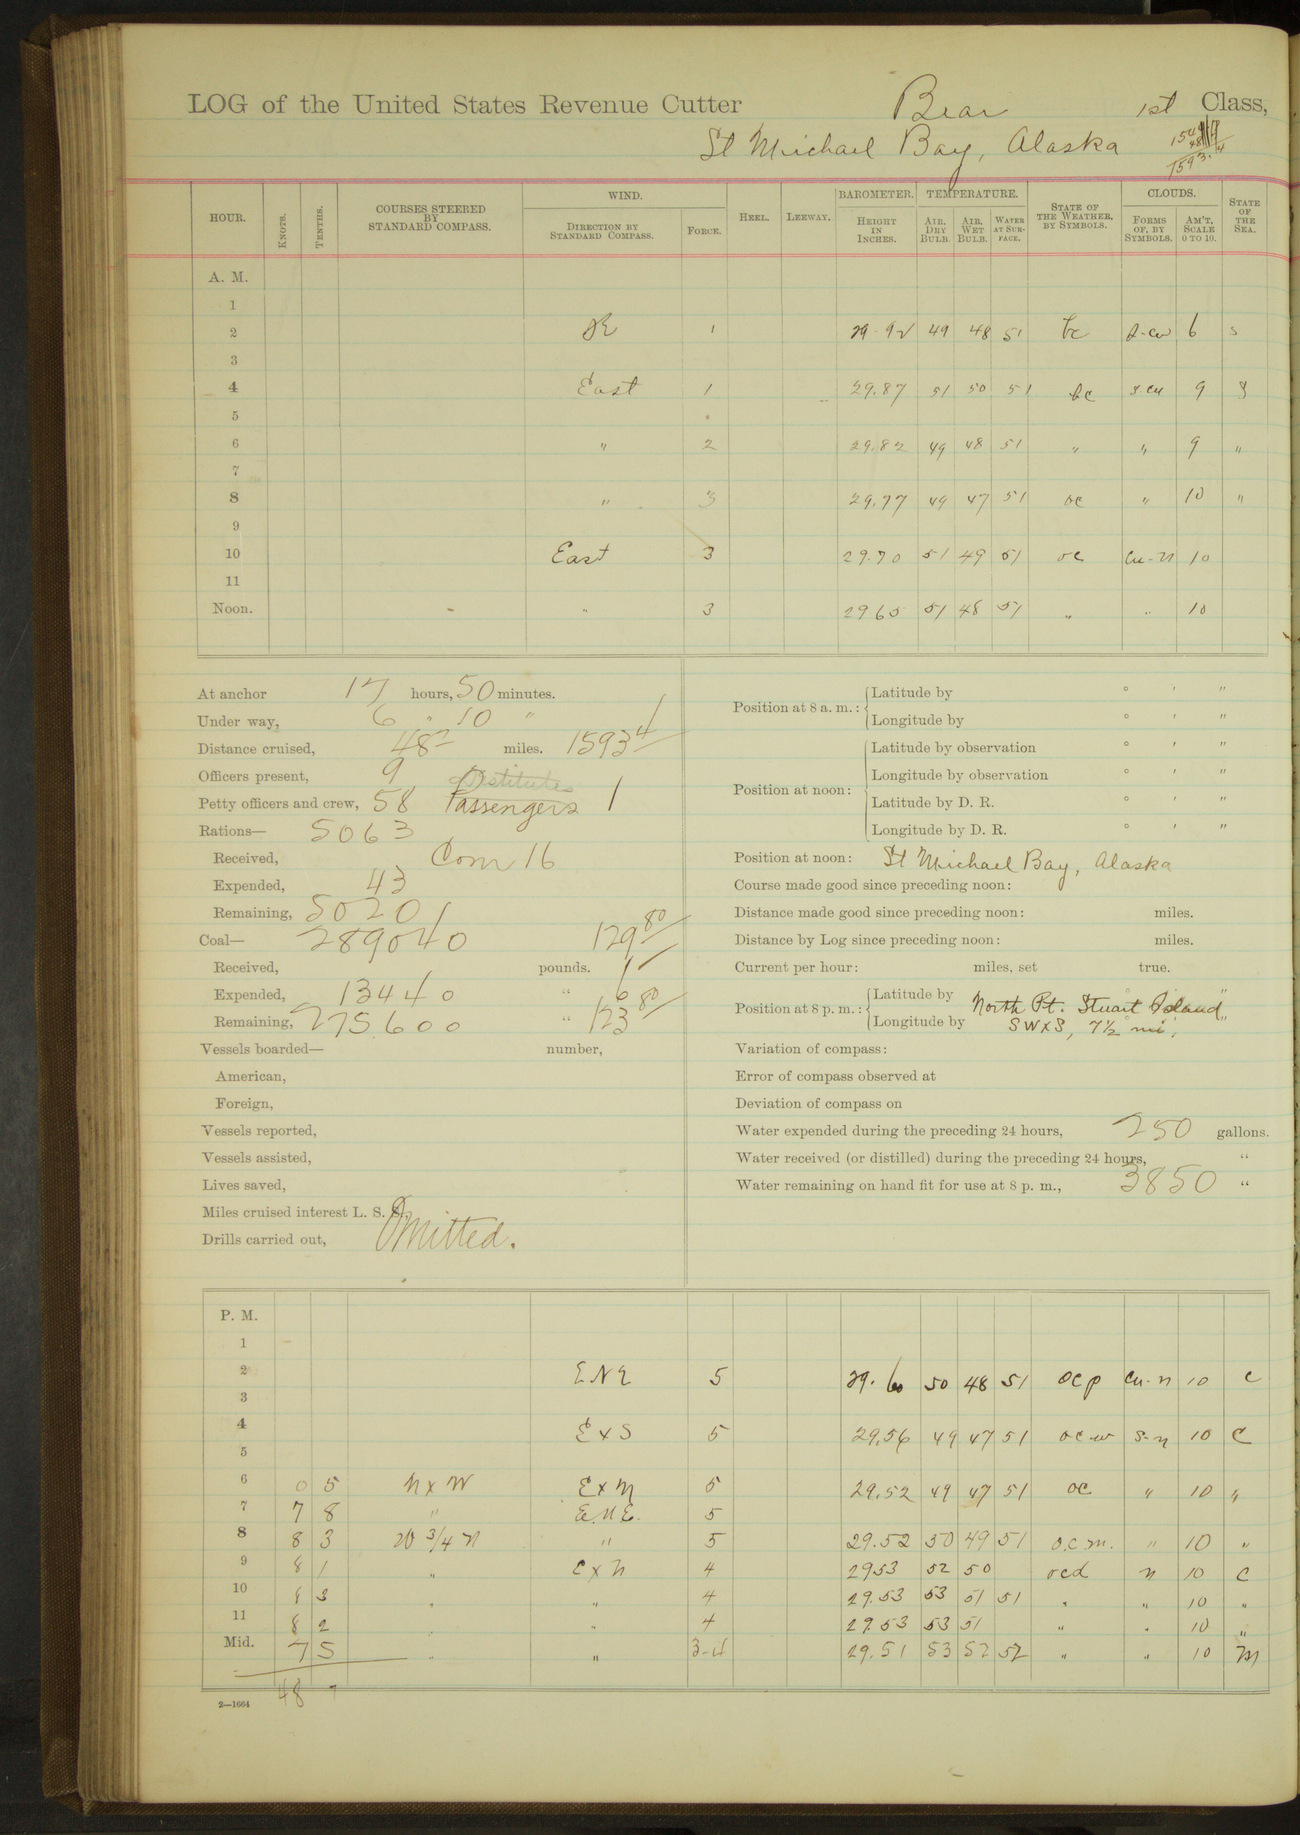 LOG of the United States Revenue Cutter Bear 1st Class,
St Michael Bay, Alaska
HOUR. KNOTS. TENTHS. COURSES STEERED BY STANDARD COMPASS. WIND. DIRECTION BY STANDARD COMPASS. FORCE. HEEL. LEEWAY. BAROMETER. HEIGHT IN INCHES. TEMPERATURE. AIR, DRY BULB. AIR, WET BULB. WATER AT SURFACE. STATE OF THE WEATHER, BY SYMBOLS. CLOUDS. FORMS OF, BY SYMBOLS. AM'T, SCALE 0 TO 10. STATE OF THE SEA.
A. M.
1
2 1 29.92 49 48 51 bc s-cu 6 s
3
4 East 1 29.87 51 50 51 bc s-cu 9 S
5
6 " 2 29.82 49 48 51 " " 9 "
7
8 " 3 29.77 49 47 51 oc " 10 "
9
10 East 3 29.70 51 49 51 oc cu-n 10
11
Noon. " 3 29 65 51 48 51 " " 10
At anchor 17 hours, 50 minutes.
Under way, 6 " 10 "
Distance cruised, 48 7 miles. 1593 4
Officers present, 9
Petty officers and crew, 58 Passengers 1
Rations— 5063
Received, Com 16
Expended, 43
Remaining, 5020
Coal— 289040 129 80
Received, pounds.
Expended, 13440 " 6
Remaining, 275600 " 123 80
Vessels boarded— number,
American,
Foreign,
Vessels reported,
Vessels assisted,
Lives saved,
Miles cruised interest L. S. S.
Drills carried out, Omitted.
Position at 8 a. m.: Latitude by ° ' "
Longitude by ° ' "
Position at noon: Latitude by observation ° ' "
Longitude by observation ° ' "
Latitude by D. R. ° ' "
Longitude by D. R. ° ' "
Position at noon: St Michael Bay, Alaska
Course made good since preceding noon:
Distance made good since preceding noon: miles.
Distance by Log since preceding noon: miles.
Current per hour: miles, set true.
Position at 8 p. m.: Latitude by North Pt. Stuart Island
Longitude by SWxS, 7½ mi.
Variation of compass:
Error of compass observed at
Deviation of compass on
Water expended during the preceding 24 hours, 250 gallons.
Water received (or distilled) during the preceding 24 hours, "
Water remaining on hand fit for use at 8 p. m., 3850 "
P. M.
1
2 ENE 5 29.60 50 48 51 ocp cu-n 10 C
3
4 ExS 5 29.56 49 47 51 ocw s-n 10 C
5
6 0 5 NxW ExN 5 29.52 49 47 51 oc " 10 "
7 7 8 " E.N.E. 5
8 8 3 W 3/4 N " 5 29.52 50 49 51 o.c.m. " 10 "
9 8 1 " ExN 4 2953 52 50 ocd n 10 C
10 8 3 " " 4 29.53 53 51 51 " " 10 "
11 8 2 " " 4 29.53 53 51 " " 10 "
Mid. 7 5 " " 3-4 29.51 53 52 52 " " 10 M
48 7
2—1664